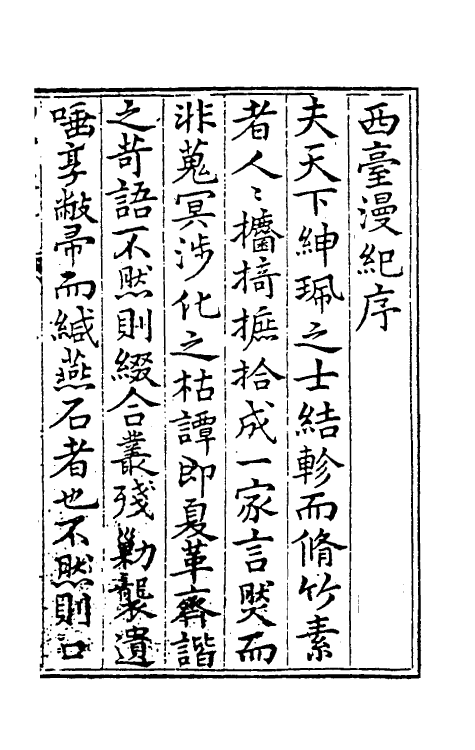 西臺漫紀序
夫天下紳珮之士結軫而脩竹素
者人〻櫹掎摭拾成一家言然而
非蒐冥涉化之枯譚即夏革齊諧
之苛語不然則綴合叢殘勦襲遺
唾享敝帚而緘燕石者也不然則口